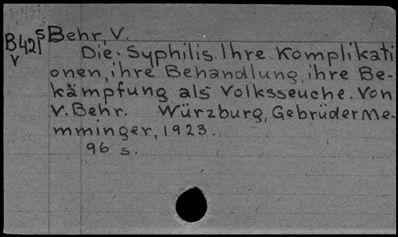 B42 S Behr, V.
V Die. Syphilis. Ihre Komplikati
onen, ihre Behandlung, ihre Be-
kämpfung als Volksseuche. Von
V. Behr. Würzburg, Gebrüder Me-
mminger, 1923.
96 s.